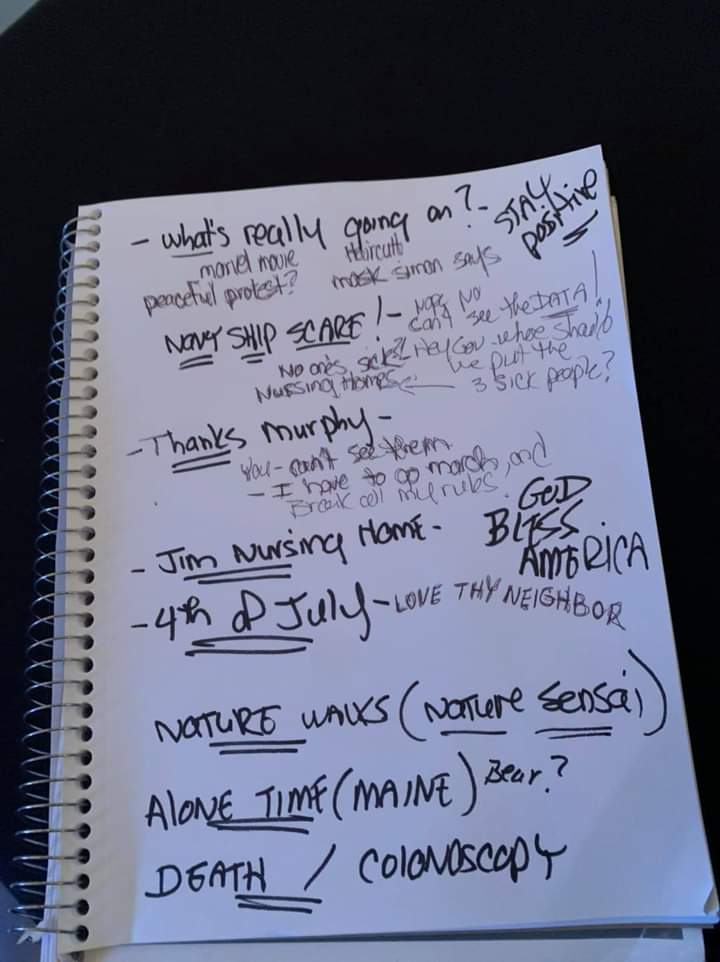 - what's really going on? - STAY
positive
marvel movie Haircutt
peaceful protest? mask simon says
NAVY SHIP SCARE! - Nope, No
can't see the DATA!
No one's sick? Hey Gov - where should
we put the
Nursing Homes ← 3 sick people?
- Thanks Murphy -
You - can't see them
- I have to go march, and
Break all my rules.
- Jim Nursing Home - GOD
BLESS
AMERICA
- 4th of July - LOVE THY NEIGHBOR
NATURE WALKS (Nature Sensai)
ALONE TIME (MAINE) Bear?
DEATH / COLONOSCOPY